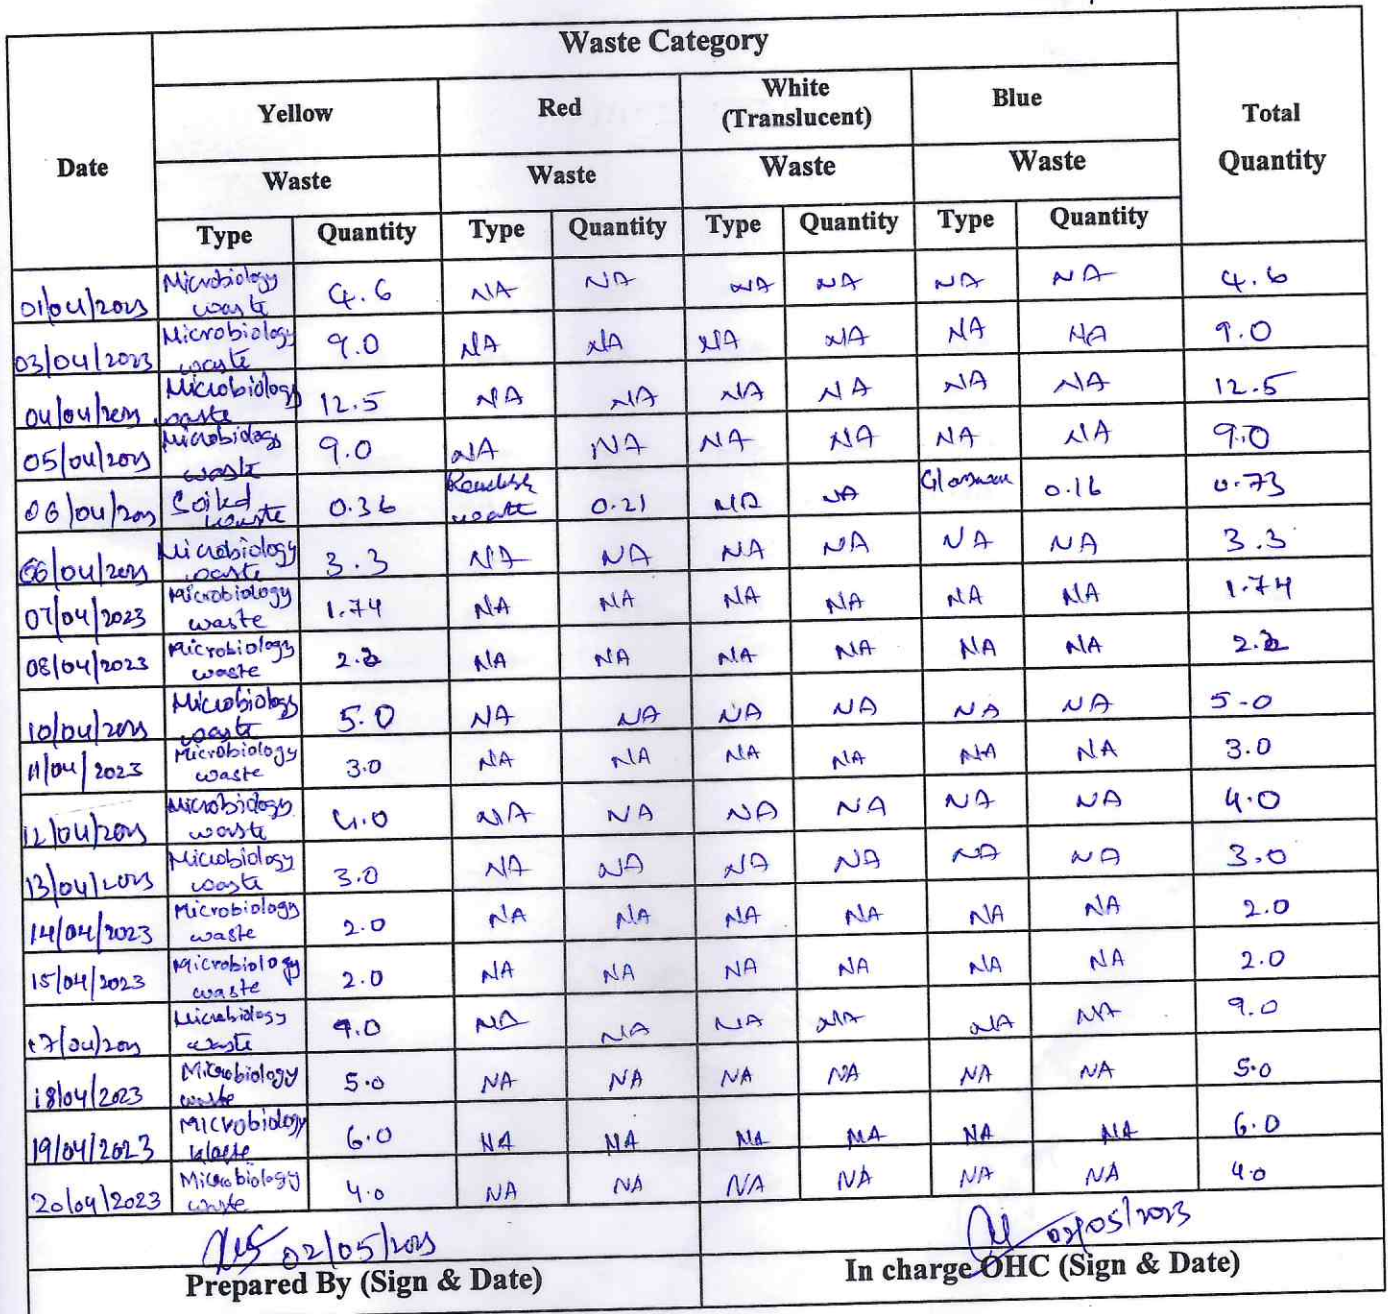 Waste Category
Date
Yellow Red White (Translucent) Blue Total Quantity
Waste Waste Waste Waste
Type Quantity Type Quantity Type Quantity Type Quantity
01/04/2023 Microbiology waste 4.6 NA NA NA NA NA NA 4.6
03/04/2023 Microbiology waste 9.0 NA NA NA NA NA NA 9.0
04/04/2023 Microbiology waste 12.5 NA NA NA NA NA NA 12.5
05/04/2023 Microbiology waste 9.0 NA NA NA NA NA NA 9.0
06/04/2023 Soiled waste 0.36 waste 0.21 NA NA 0.16 0.73
06/04/2023 Microbiology waste 3.3 NA NA NA NA NA NA 3.3
07/04/2023 Microbiology waste 1.74 NA NA NA NA NA NA 1.74
08/04/2023 Microbiology waste NA NA NA NA NA NA
10/04/2023 Microbiology waste 5.0 NA NA NA NA NA NA 5.0
11/04/2023 Microbiology waste 3.0 NA NA NA NA NA NA 3.0
12/04/2023 Microbiology waste 4.0 NA NA NA NA NA NA 4.0
13/04/2023 Microbiology waste 3.0 NA NA NA NA NA NA 3.0
14/04/2023 Microbiology waste 2.0 NA NA NA NA NA NA 2.0
15/04/2023 Microbiology waste 2.0 NA NA NA NA NA NA 2.0
17/04/2023 Microbiology waste 9.0 NA NA NA NA NA NA 9.0
18/04/2023 Microbiology waste 5.0 NA NA NA NA NA NA 5.0
19/04/2023 Microbiology waste 6.0 NA NA NA NA NA NA 6.0
20/04/2023 Microbiology waste 4.0 NA NA NA NA NA NA 4.0
02/05/2023 02/05/2023
Prepared By (Sign & Date) In charge OHC (Sign & Date)